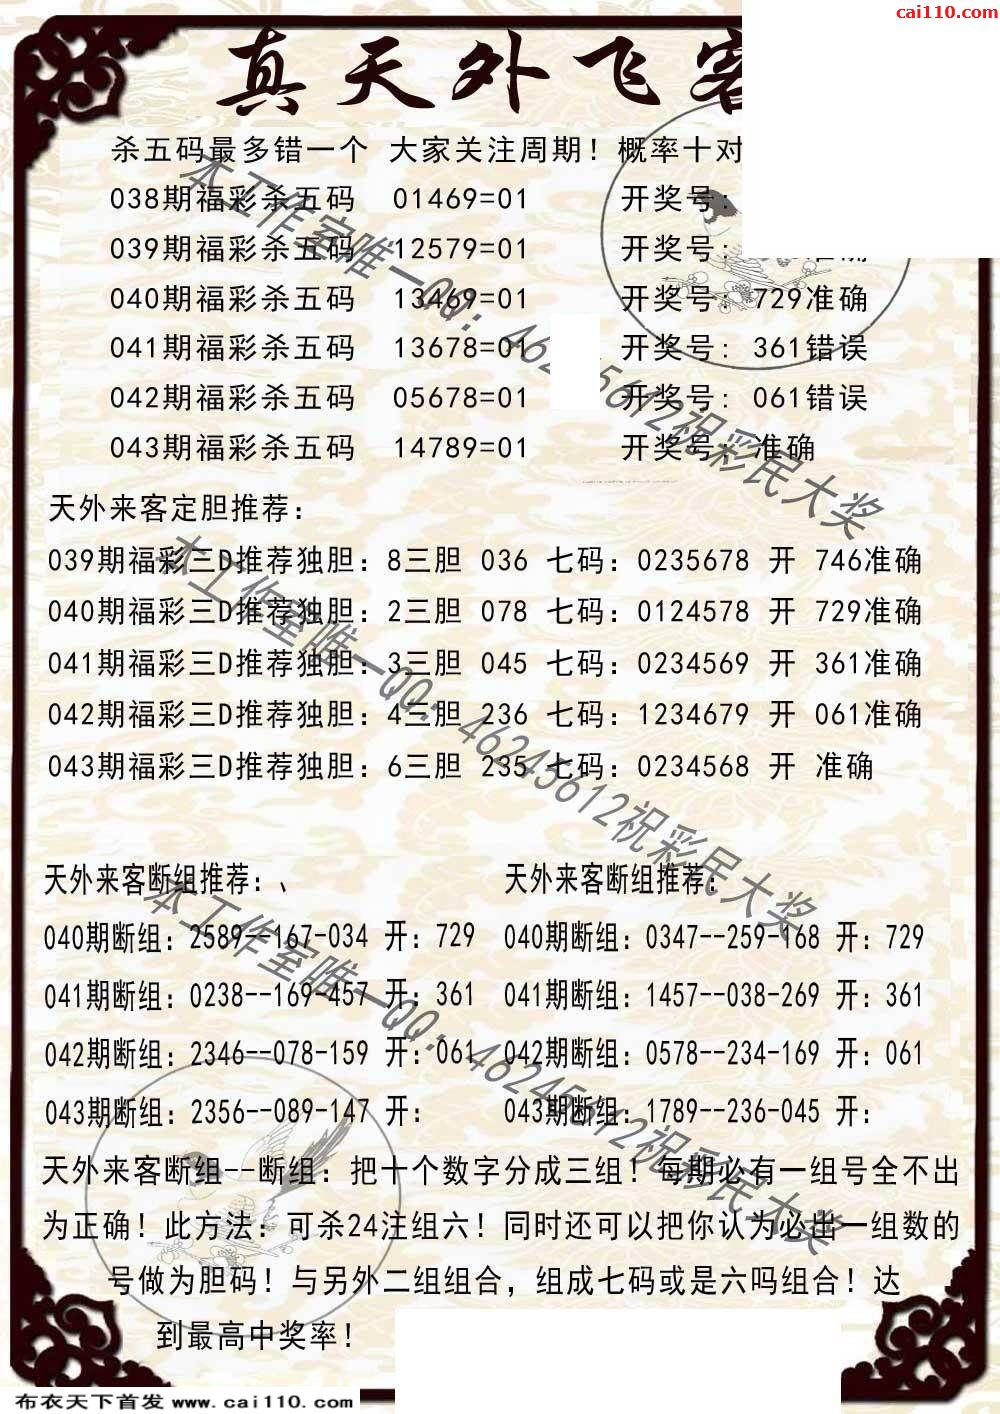 cai110.com
真天外飞客
杀五码最多错一个 大家关注周期！概率十对
038期福彩杀五码 01469=01 开奖号:
039期福彩杀五码 12579=01 开奖号: 准确
040期福彩杀五码 13469=01 开奖号: 729准确
041期福彩杀五码 13678=01 开奖号: 361错误
042期福彩杀五码 05678=01 开奖号: 061错误
043期福彩杀五码 14789=01 开奖号: 准确
天外来客定胆推荐：
039期福彩三D推荐独胆：8三胆 036 七码：0235678 开 746准确
040期福彩三D推荐独胆：2三胆 078 七码：0124578 开 729准确
041期福彩三D推荐独胆：3三胆 045 七码：0234569 开 361准确
042期福彩三D推荐独胆：4三胆 236 七码：1234679 开 061准确
043期福彩三D推荐独胆：6三胆 235 七码：0234568 开 准确
天外来客断组推荐：、 天外来客断组推荐：
040期断组：2589--167-034 开：729 040期断组：0347--259-168 开：729
041期断组：0238--169-457 开：361 041期断组：1457--038-269 开：361
042期断组：2346--078-159 开：061 042期断组：0578--234-169 开：061
043期断组：2356--089-147 开： 043期断组：1789--236-045 开：
天外来客断组--断组：把十个数字分成三组！每期必有一组号全不出
为正确！此方法：可杀24注组六！同时还可以把你认为必出一组数的
号做为胆码！与另外二组组合，组成七码或是六吗组合！达
到最高中奖率！
本工作室唯一QQ：46245612祝彩民大奖
本工作室唯一QQ：46245612祝彩民大奖
本工作室唯一QQ：46245612祝彩民大奖
布衣天下首发 www.cai110.com